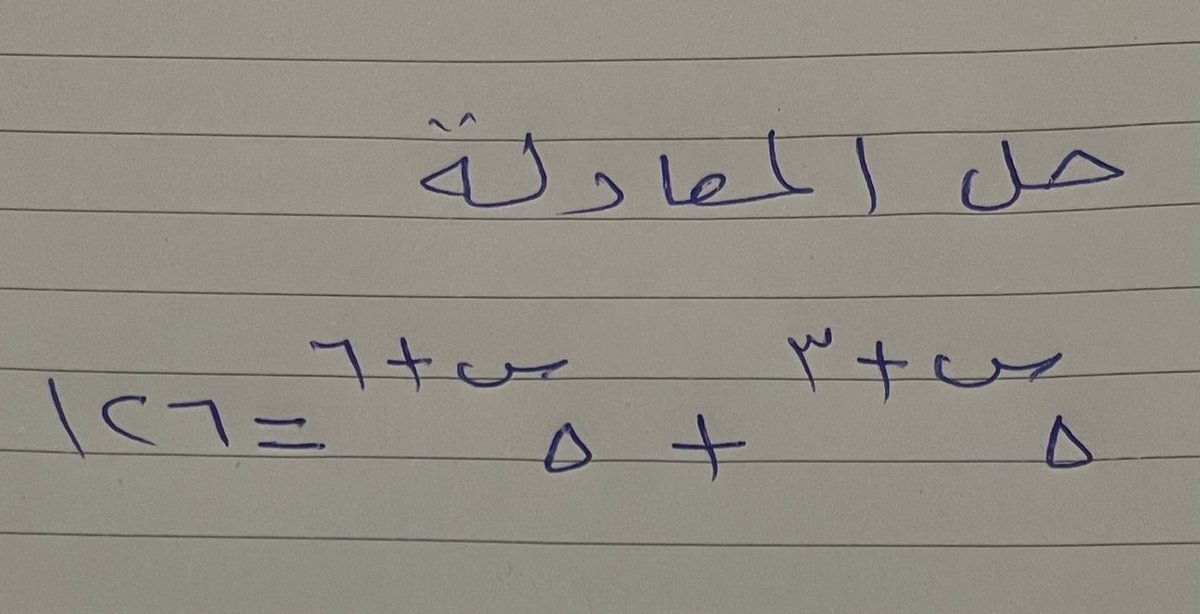 حل المعادلة
٥^(س+٣) + ٥^(س+٦) = ١٢٦